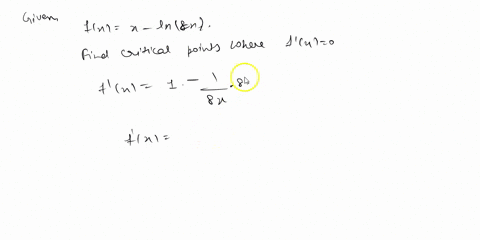 Given f(x) = x - ln(8x).
Find critical points where f'(x)=0
f'(x) = 1 - 1/8x · 8
f'(x) =